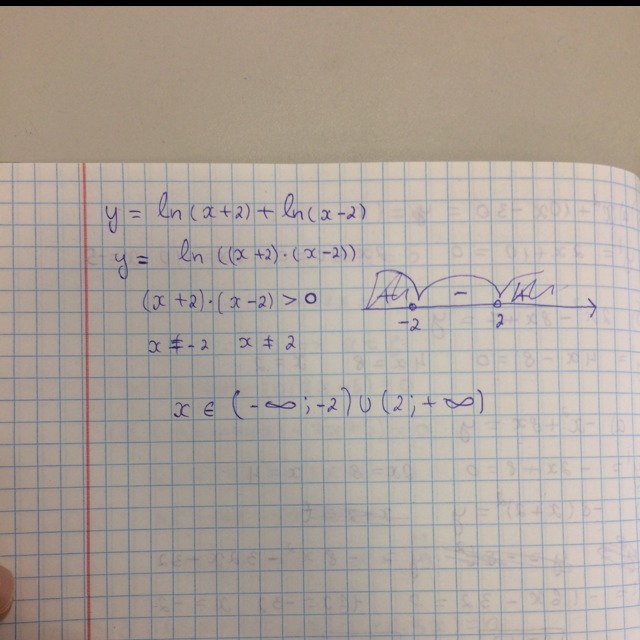 y = ln(x+2) + ln(x-2)
y = ln((x+2)·(x-2))
(x+2)·(x-2) > 0
+ - +
-2 2
x ≠ -2 x ≠ 2
x ∈ (-∞; -2) ∪ (2; +∞)